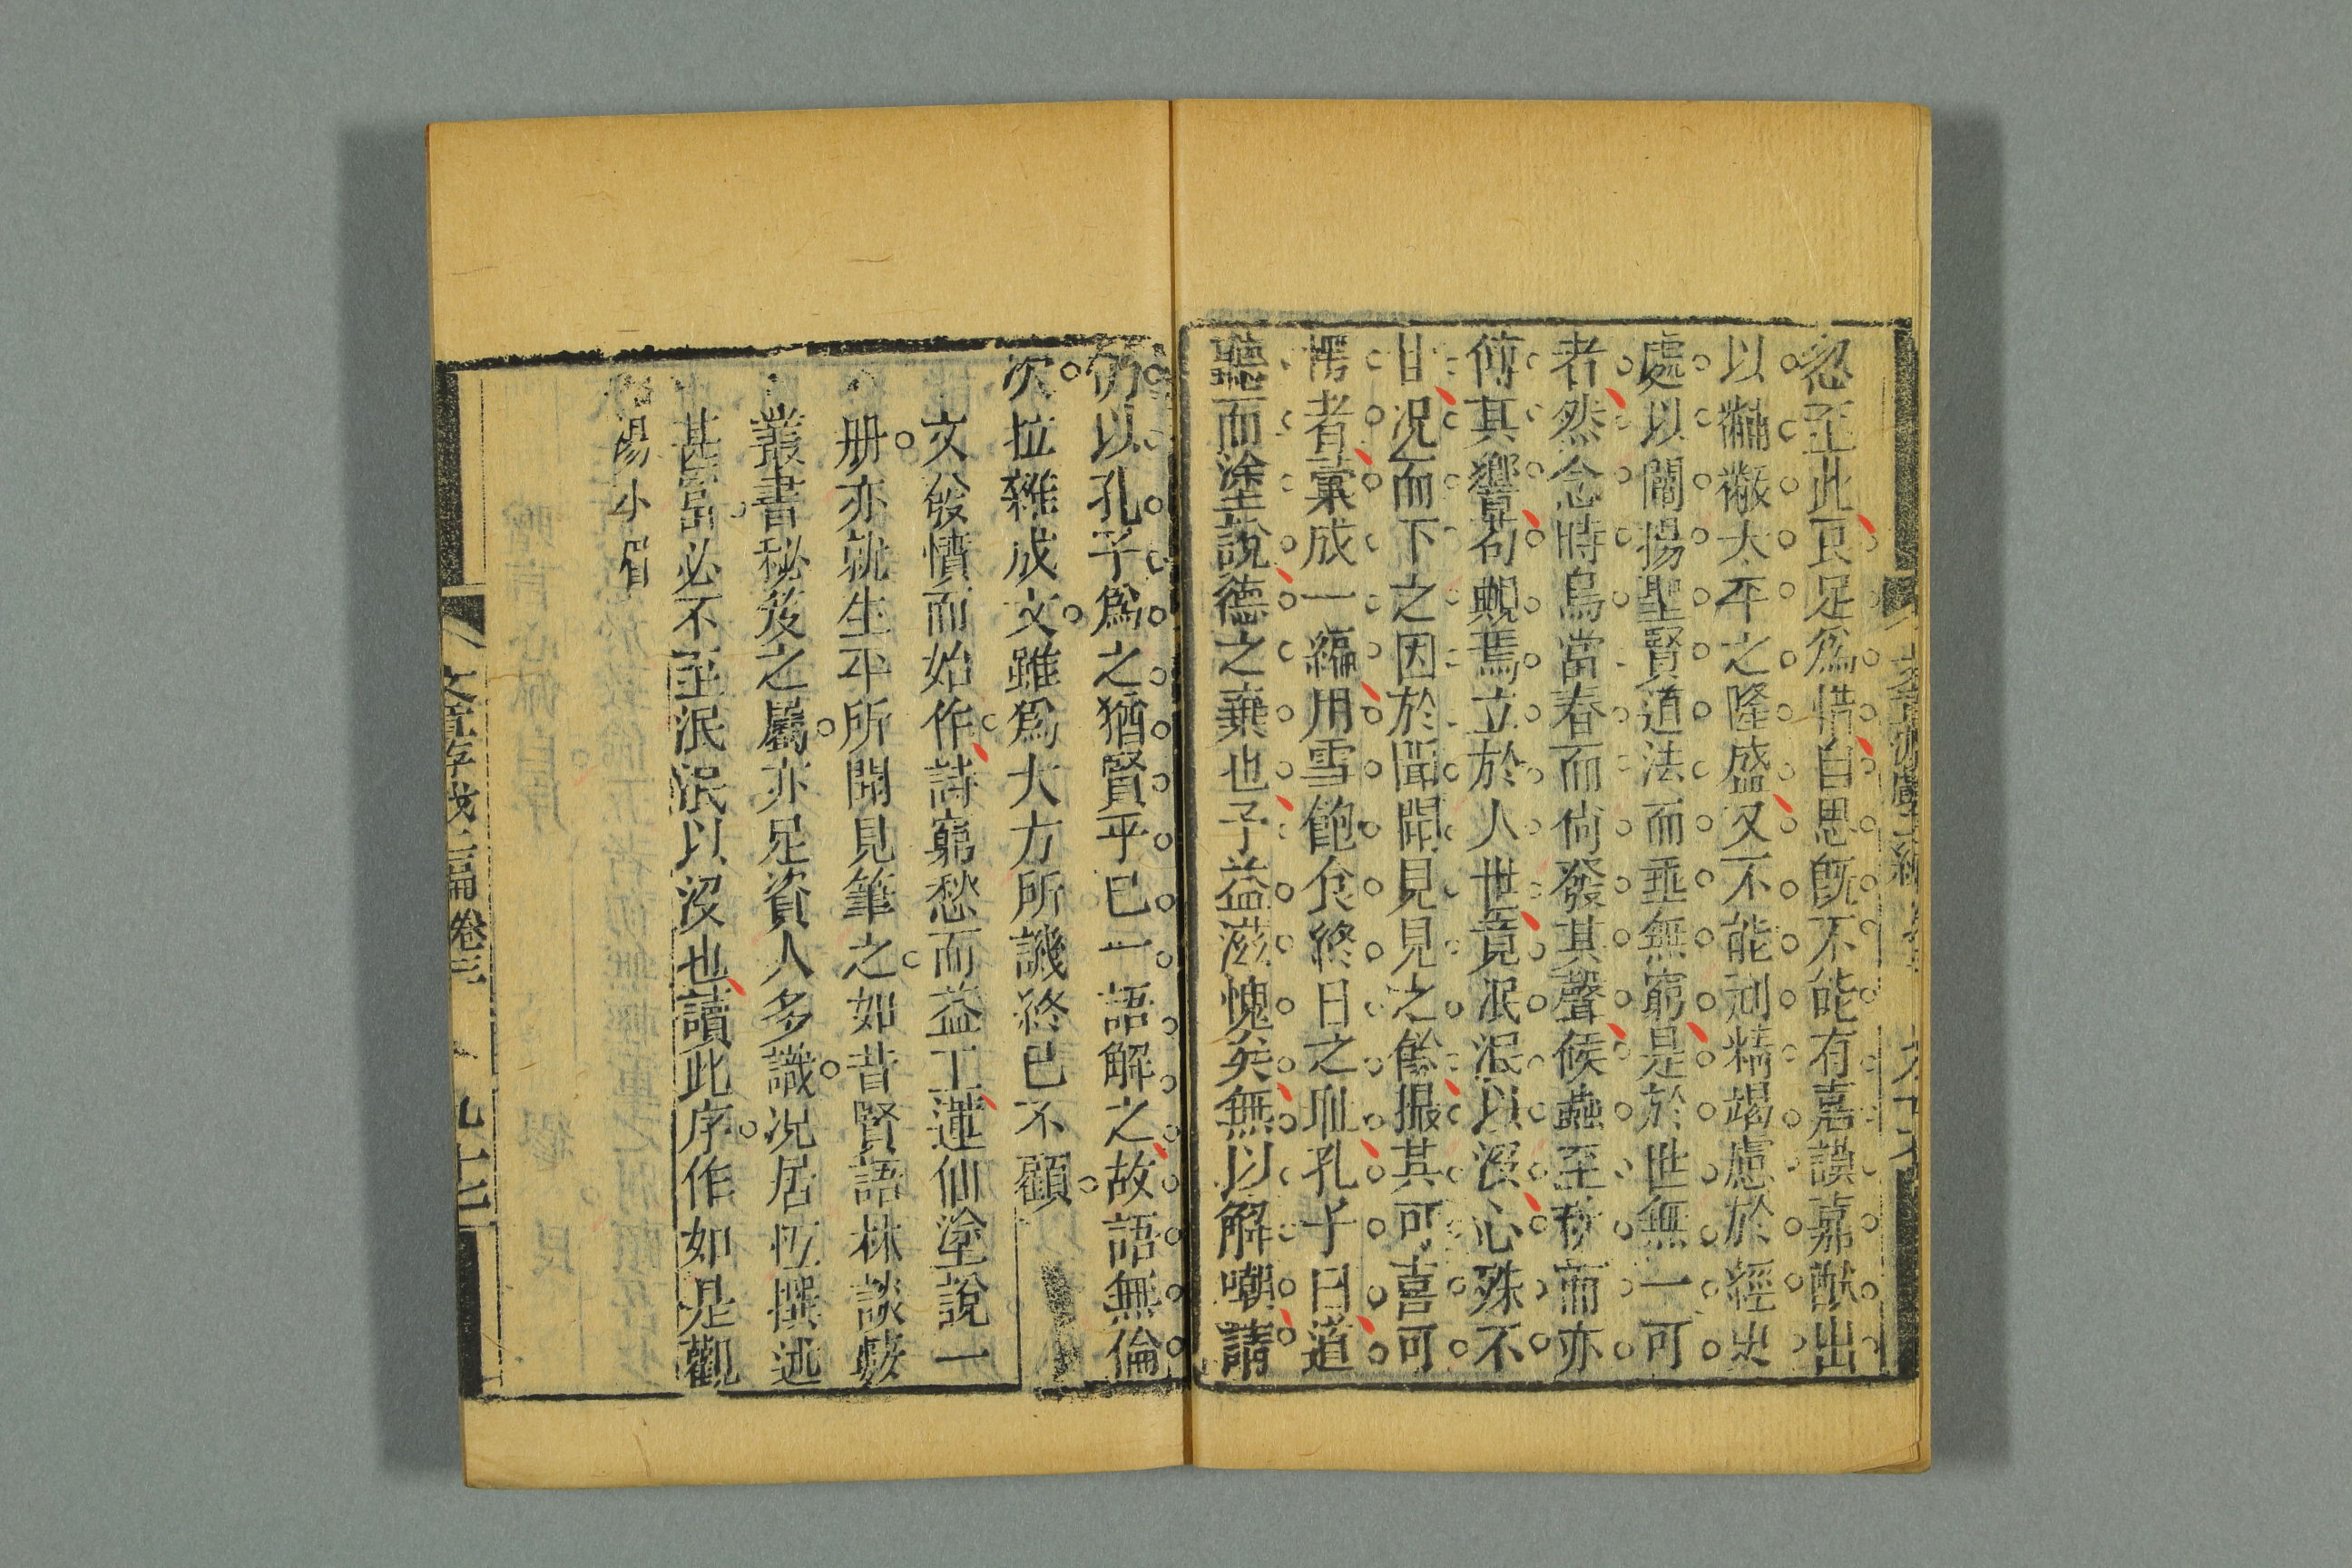 忽至此艮足爲惜自思旣不能有嘉謨嘉猷出
以黼黻太平之隆盛又不能刳精竭慮於經史
處以闡揚聖賢道法而垂無窮是於世無一可
者然念時鳥當春而尙發其聲候蟲至秋而亦
傳其響苟覥焉立於人世竟泯泯以沒心殊不
甘况而下之因於聞聞見見之餘撮其可喜可
愕者彙成一編用雪飽食終日之耻孔子曰道
聽而塗說德之棄也予益滋愧矣無以解嘲請
仍以孔子爲之猶賢乎已一語解之故語無倫
次拉雜成文雖爲大方所譏終已不顧
文發憤而始作詩窮愁而益工蓮仙塗說一
册亦就生平所聞見筆之如昔賢語林談藪
叢書秘笈之屬亦足資人多識况居恆撰述
甚富必不至泯泯以沒也讀此序作如是觀
湯小眉
文章存 二編卷三
九十七